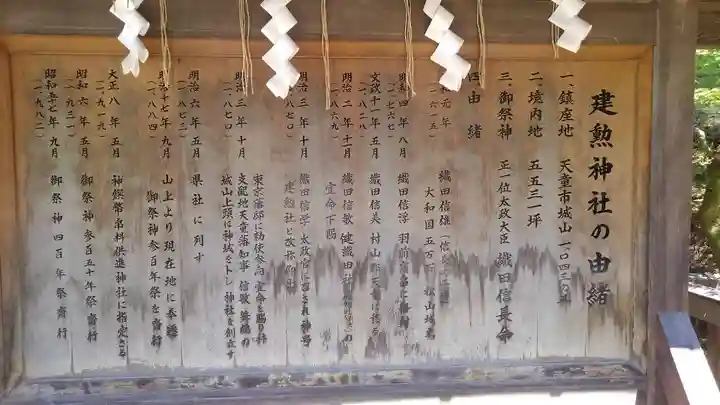 建勲神社の由緒
一、鎮座地 天童市城山一〇四三
二、境内地 五五三一坪
三、御祭神 正一位太政大臣 織田信長命
由緒
元年 織田信雄
(一六一五) 大和国五万石
明和四年八月 織田信浮 羽前
(一七六七)
文政十一年五月 織田信美 村山郡天童に
(一八二八)
明治二年十一月 織田信敏 健織田社 の
(一八六九) 宣命下賜
明治三年十月 織田信学 太政官に 神号
(一八七〇) 建勲社と改称
明治三年十月 東京藩邸に勅使参向 宣命を賜り拝
(一八七〇) 支配地天童藩知事 信敏 舞鶴の
城山上頭に神域を卜し 神社を創立す
明治六年五月 県社に列す
(一八七三)
明治十七年九月 山上より現在地に奉遷
(一八八四) 御祭神参百年祭を斎行
大正八年五月 神饌幣帛料供進神社に指定さる
(一九一九)
昭和六年五月 御祭神参百五十年祭斎行
(一九三一)
昭和五十七年九月 御祭神四百年祭斎行
(一九八二)